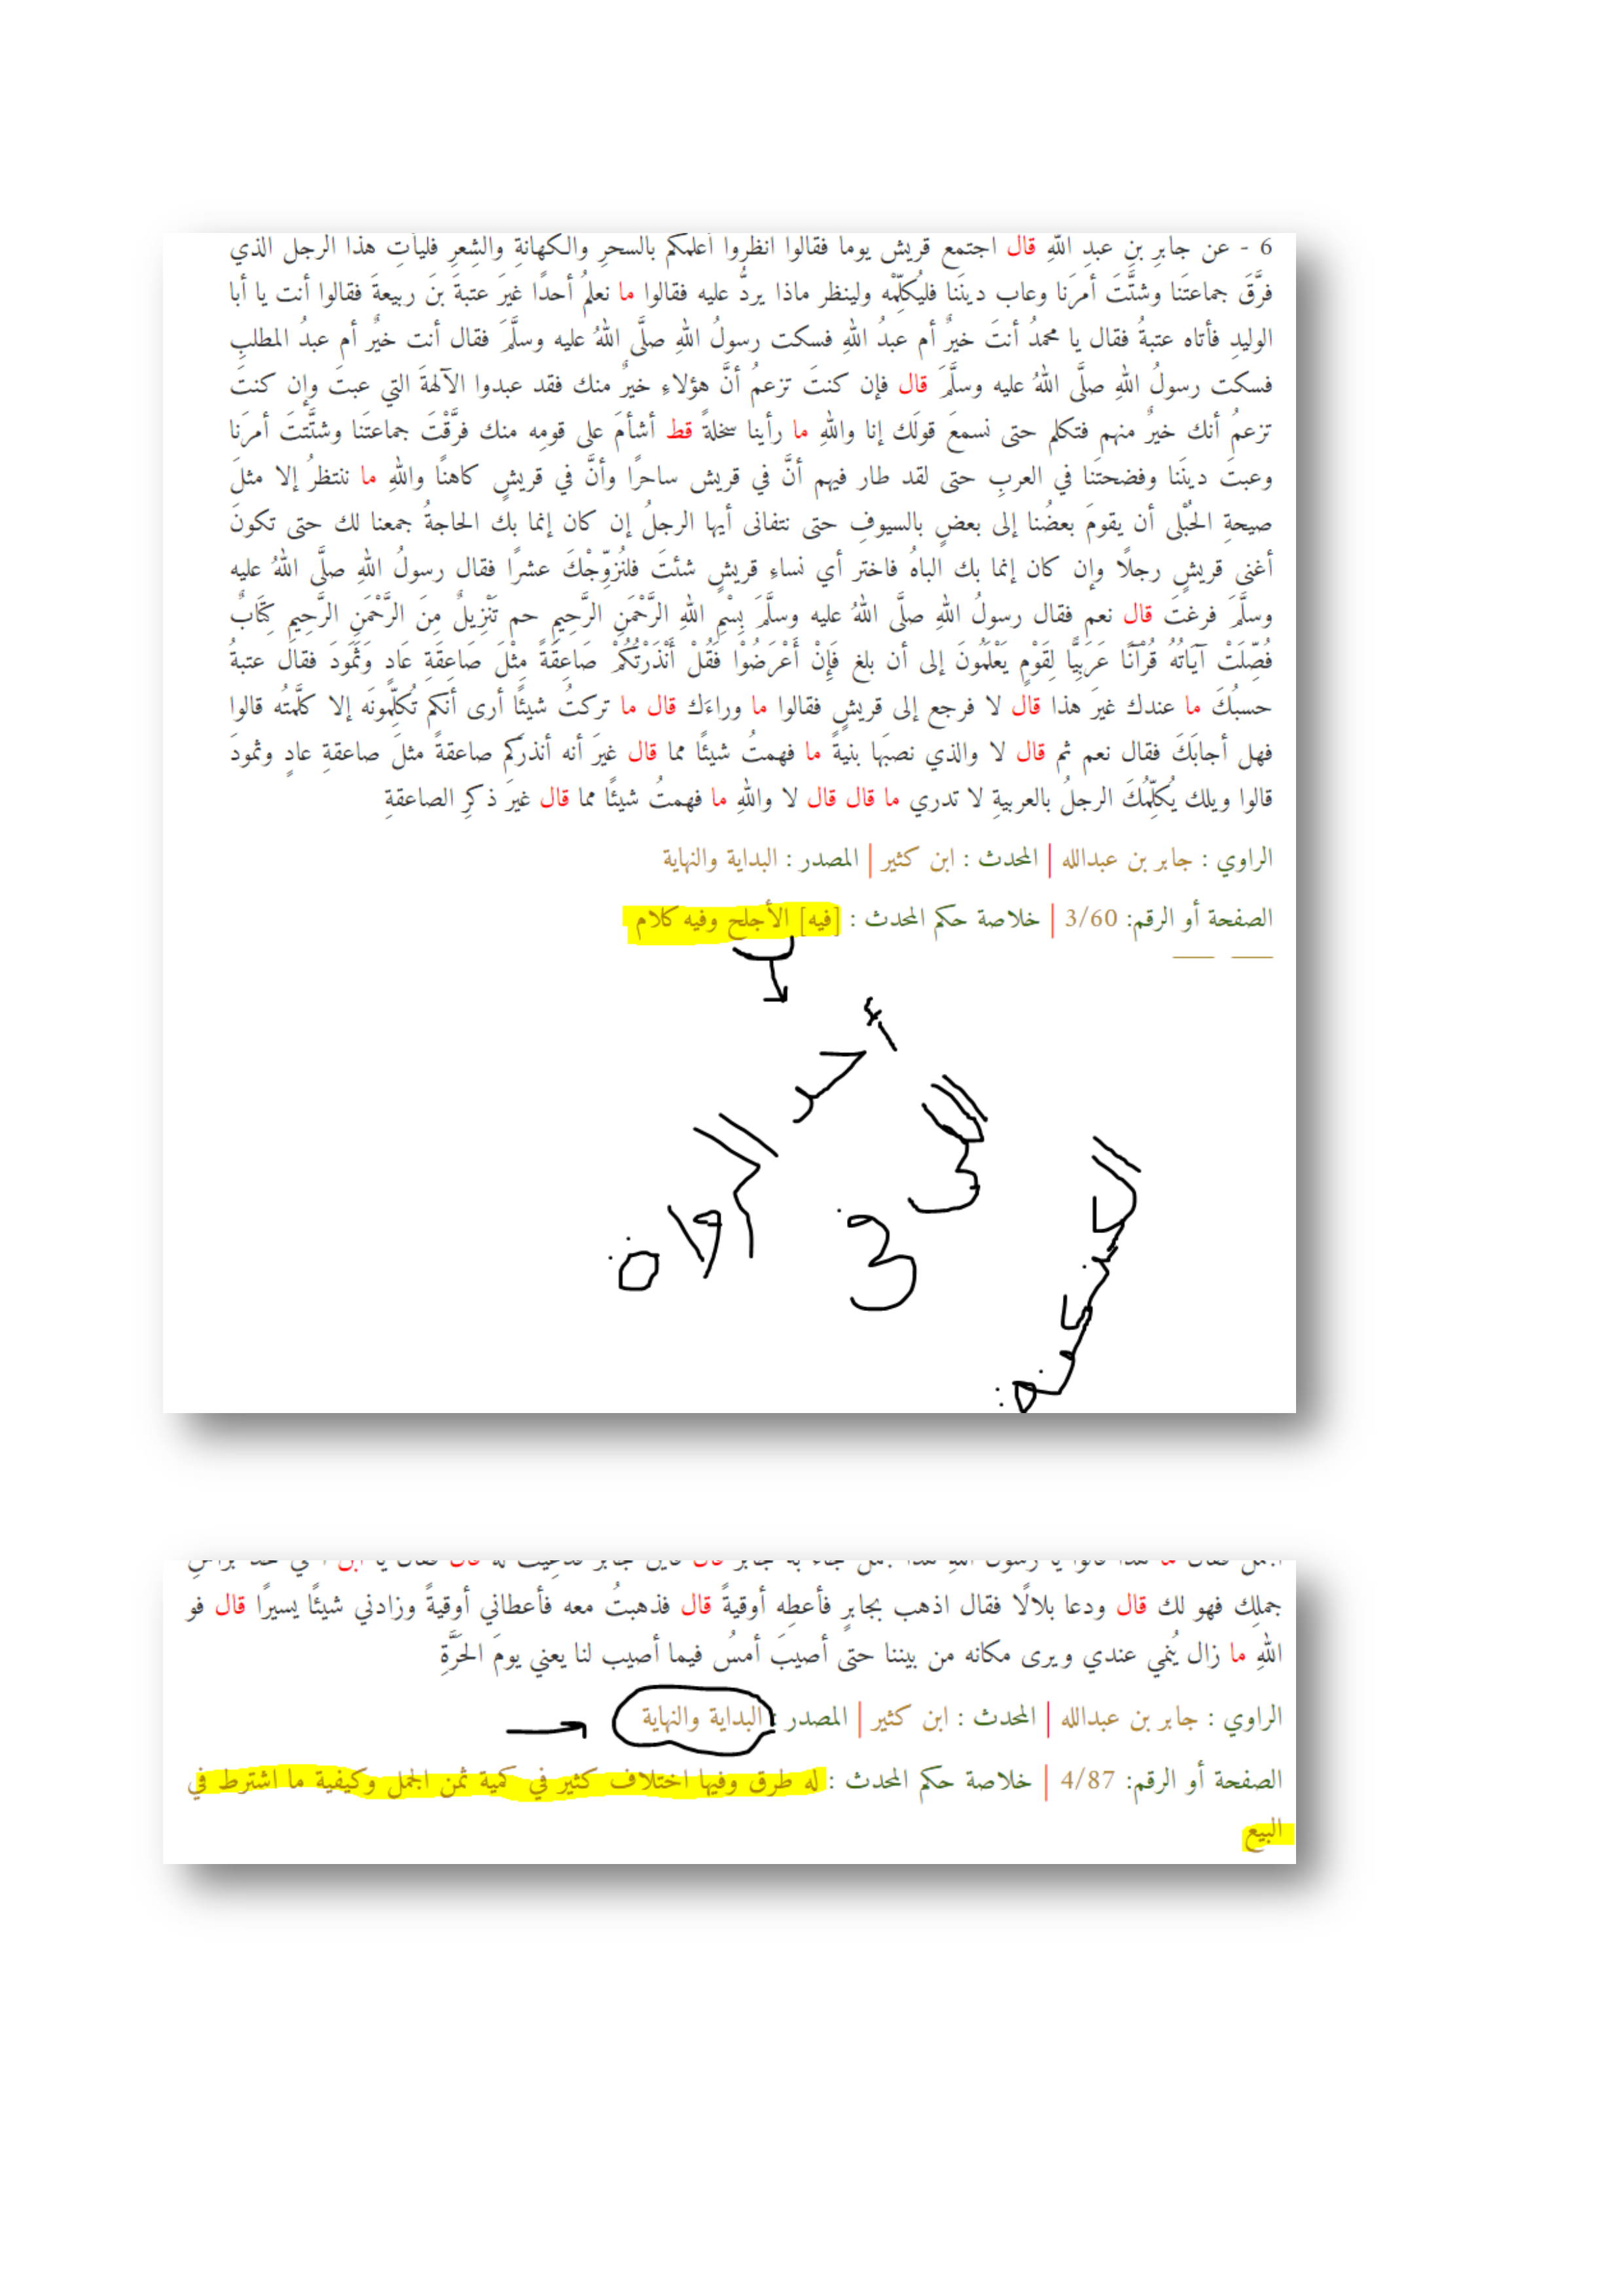 6 - عن جابرِ بنِ عبدِ اللهِ قال اجتمع قريش يوما فقالوا انظروا أعلمكم بالسحرِ والكهانةِ والشِعرِ فليأتِ هذا الرجل الذي
فرَّقَ جماعتَنا وشتَّتَ أمرَنا وعاب دينَنا فليُكلِّمْه ولينظر ماذا يردُّ عليه فقالوا ما نعلمُ أحدًا غيرَ عتبةَ بنَ ربيعةَ فقالوا أنت يا أبا
الوليدِ فأتاه عتبةُ فقال يا محمدُ أنتَ خيرٌ أم عبدُ اللهِ فسكت رسولُ اللهِ صلَّى اللهُ عليه وسلَّمَ فقال أنت خيرٌ أم عبدُ المطلبِ
فسكت رسولُ اللهِ صلَّى اللهُ عليه وسلَّمَ قال فإن كنتَ تزعمُ أنَّ هؤلاءِ خيرٌ منك فقد عبدوا الآلهةَ التي عبتَ وإن كنتَ
تزعمُ أنك خيرٌ منهم فتكلم حتى نسمعَ قولَك إنا واللهِ ما رأينا سخلةً قط أشأمَ على قومِه منك فرَّقْتَ جماعتَنا وشتَّتتَ أمرَنا
وعبتَ دينَنا وفضحتَنا في العربِ حتى لقد طار فيهم أنَّ في قريش ساحرًا وأنَّ في قريشٍ كاهنًا واللهِ ما ننتظرُ إلا مثلَ
صيحةِ الحُبْلى أن يقومَ بعضُنا إلى بعضٍ بالسيوفِ حتى نتفانى أيها الرجلُ إن كان إنما بك الحاجةُ جمعنا لك حتى تكونَ
أغنى قريشٍ رجلًا وإن كان إنما بك الباهُ فاختر أي نساءِ قريشٍ شئتَ فلنُزوِّجْكَ عشرًا فقال رسولُ اللهِ صلَّى اللهُ عليه
وسلَّمَ فرغتَ قال نعم فقال رسولُ اللهِ صلَّى اللهُ عليه وسلَّمَ بِسْمِ اللهِ الرَّحْمَنِ الرَّحِيمِ حم تَنْزِيلٌ مِنَ الرَّحْمَنِ الرَّحِيمِ كِتَابٌ
فُصِّلَتْ آيَاتُهُ قُرْآنًا عَرَبِيًّا لِقَوْمٍ يَعْلَمُونَ إلى أن بلغ فَإِنْ أَعْرَضُوْا فَقُلْ أَنْذَرْتُكُمْ صَاعِقَةً مِثْلَ صَاعِقَةِ عَادٍ وَثَمُودَ فقال عتبةُ
حسبُكَ ما عندك غيرَ هذا قال لا فرجع إلى قريشٍ فقالوا ما وراءَك قال ما تركتُ شيئًا أرى أنكم تُكلِّمونَه إلا كلَّمتُه قالوا
فهل أجابَكَ فقال نعم ثم قال لا والذي نصبَها بنيةً ما فهمتُ شيئًا مما قال غيرَ أنه أنذرَكم صاعقةً مثلَ صاعقةِ عادٍ وثمودَ
قالوا ويلك يُكلِّمُكَ الرجلُ بالعربيةِ لا تدري ما قال قال لا واللهِ ما فهمتُ شيئًا مما قال غيرَ ذكرِ الصاعقةِ
الراوي : جابر بن عبدالله | المحدث : ابن كثير | المصدر : البداية والنهاية
الصفحة أو الرقم: 3/60 | خلاصة حكم المحدث : [فيه] الأجلح وفيه كلام
جملِك فهو لك قال ودعا بلالًا فقال اذهب بجابرٍ فأعطِه أوقيةً قال فذهبتُ معه فأعطاني أوقيةً وزادني شيئًا يسيرًا قال فو
اللهِ ما زال يُنمي عندي ويرى مكانه من بيننا حتى أصيبَ أمسُ فيما أصيب لنا يعني يومَ الحَرَّةِ
الراوي : جابر بن عبدالله | المحدث : ابن كثير | المصدر : البداية والنهاية
الصفحة أو الرقم: 4/87 | خلاصة حكم المحدث : له طرق وفيها اختلاف كثير في كمية ثمن الجمل وكيفية ما اشترط في
البيع